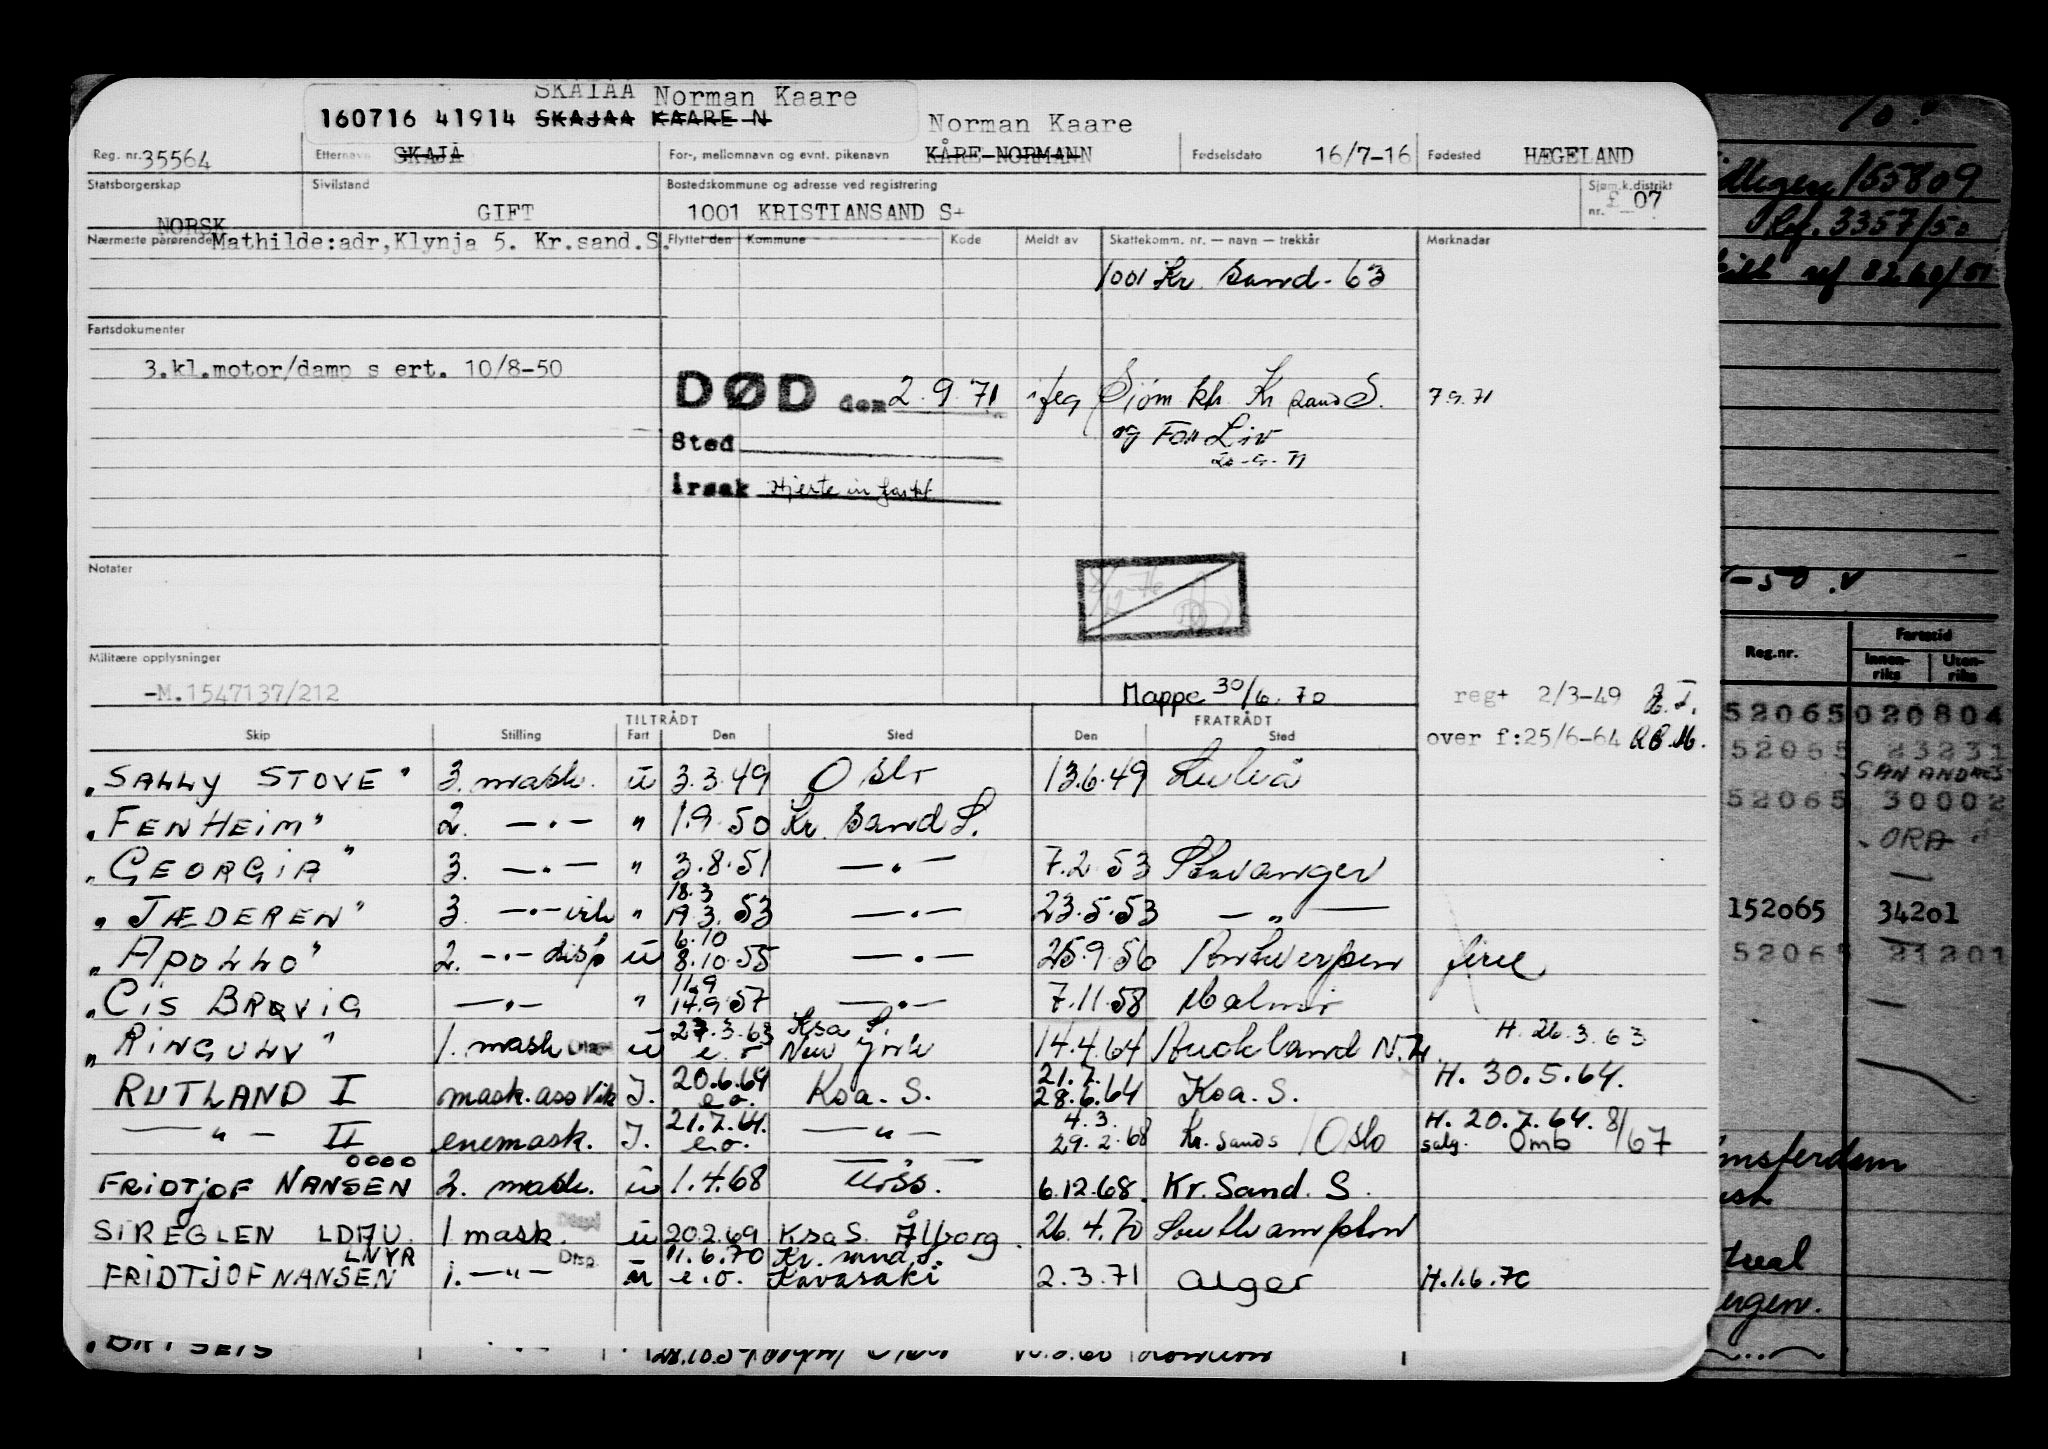 SKAIAA Norman Kaare
160716 41914 SKAJAA KAARE N
Norman Kaare
Reg. nr. 35564 Etternavn SKAJÅ For-, mellomnavn og evnt. pikenavn KÅRE NORMANN Fødselsdato 16/7-16 Fødested HÆGELAND
Statsborgerskap NORSK Sivilstand GIFT Bostedskommune og adresse ved registrering 1001 KRISTIANSAND S+ Sjøm.k.distrikt nr. 07
Nærmeste pårørende Mathilde:adr,Klynja 5. Kr.sand.S. Flyttet den Kommune Kode Meldt av Skattekomm. nr. — navn — trekkår Merknader
1001 Kr. Sand - 63
Fartsdokumenter
3.kl.motor/damp s ert. 10/8-50
DØD den 2.9.71 Sjøm ktr Kr sand S. 7.9.71
Sted og For Liv
20-9-71
Årsak Hjerteinfarkt
Notater
Militære opplysninger
-M.1547137/212
Mappe 30/6.70 reg+ 2/3-49
over f:25/6-64
TILTRÅDT FRATRÅDT
Skip Stilling Fart Den Sted Den Sted
"SALLY STOVE" 3. mask. u 3.3.49 Oslo 13.6.49 Luleå
"FENHEIM" 2. —•— " 1.9.50 Kr. Sand S.
"GEORGIA" 3. —•— " 3.8.51 —•— 7.2.53 Stavanger
"JÆDEREN" 3. —•— vik " 18.3 19.3.53 —•— 23.5.53 — " —
"APOLLO" 2. —•— disp u 6.10 8.10.55 —•— 25.9.56 Antwerpen ferie
"CIS BRØVIG —•— " 11.9 14.9.57 —•— 7.11.58 Malmö
"RINGULV" 1. mask Disp u 27.3.63 e.o Ksa S. New York 14.4.64 Auckland N.Z. H. 26.3.63
RUTLAND I mask.ass Vik I. 20.6.64 e.o. Ksa. S. 21.7. 28.6.64 Ksa. S. H. 30.5.64.
— " — II enemask. I. 21.7.64. e.o. — " — 4.3. 29.2.68 Kr. Sands / Oslo H. 20.7.64. 8/67
salg. Omb
FRIDTJOF NANSEN 2. mask. u 1.4.68 Moss. 6.12.68. Kr. Sand. S.
SIREGLEN LDAU 1 mask. u 20.2.69 Ksa S. Ålborg. 26.4.70 Southampton
LNYR
FRIDTJOF NANSEN 1. —"— Disp. u 11.6.70 e.o. Kr. sand S. Kawasaki 2.3.71 Alger H.1.6.70
"BRISEIS
155809
Ref. 3357/50
Reg.nr. Fartstid
Innen-riks Uten-riks
52065 020804
52065 23231
SAN ANDRES
52065 30002
ORA
152065 34201
52065 21201